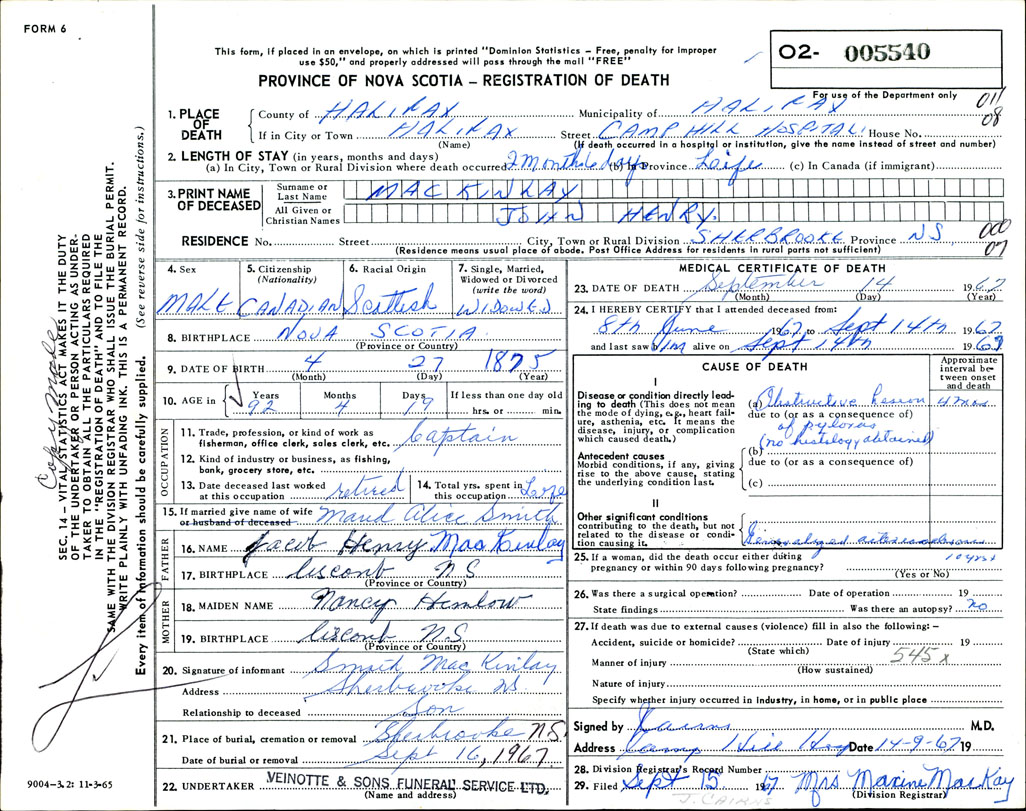 FORM 6
This form, if placed in an envelope, on which is printed "Dominion Statistics – Free, penalty for improper
use $50," and properly addressed will pass through the mail "FREE"
O2- 005540
PROVINCE OF NOVA SCOTIA – REGISTRATION OF DEATH
For use of the Department only
011
08
1. PLACE OF DEATH
County of HALIFAX Municipality of HALIFAX
If in City or Town HALIFAX Street CAMP HILL HOSPITAL House No.
(Name) (If death occurred in a hospital or institution, give the name instead of street and number)
2. LENGTH OF STAY (in years, months and days)
(a) In City, Town or Rural Division where death occurred 2 Months days (b) In Province Life (c) In Canada (if immigrant)
3. PRINT NAME OF DECEASED
Surname or Last Name MACKINLAY
All Given or Christian Names JOHN HENRY
RESIDENCE No. Street City, Town or Rural Division SHERBROOKE Province NS
(Residence means usual place of abode. Post Office Address for residents in rural parts not sufficient)
000
07
4. Sex MALE
5. Citizenship (Nationality) CANADIAN
6. Racial Origin Scottish
7. Single, Married, Widowed or Divorced (write the word) WIDOWED
8. BIRTHPLACE NOVA SCOTIA
(Province or Country)
9. DATE OF BIRTH 4 27 1875
(Month) (Day) (Year)
10. AGE in Years 92 Months 4 Days 19 If less than one day old hrs. or min.
OCCUPATION
11. Trade, profession, or kind of work as fisherman, office clerk, sales clerk, etc. Captain
12. Kind of industry or business, as fishing, bank, grocery store, etc.
13. Date deceased last worked at this occupation retired
14. Total yrs. spent in this occupation Life
15. If married give name of wife or husband of deceased Maud Alice Smith
FATHER
16. NAME Jacob Henry MacKinlay
17. BIRTHPLACE Liscomb N S
(Province or Country)
MOTHER
18. MAIDEN NAME Nancy Hemlow
19. BIRTHPLACE Liscomb N.S
(Province or Country)
20. Signature of informant Smith MacKinlay
Address Sherbrooke NS
Relationship to deceased Son
21. Place of burial, cremation or removal Sherbrooke N.S.
Date of burial or removal Sept 16, 1967.
22. UNDERTAKER VEINOTTE & SONS FUNERAL SERVICE LTD.
(Name and address)
MEDICAL CERTIFICATE OF DEATH
23. DATE OF DEATH September 14 1967
(Month) (Day) (Year)
24. I HEREBY CERTIFY that I attended deceased from:
8th June 1967 to Sept 14th 1967
and last saw him alive on Sept 14th 1967
CAUSE OF DEATH
Approximate interval between onset and death
I
Disease or condition directly leading to death (This does not mean the mode of dying, e.g., heart failure, asthenia, etc. It means the disease, injury, or complication which caused death.)
(a) Obstructive lesion 4 mos
due to (or as a consequence of)
of pylorus
(no histology obtained)
Antecedent causes
Morbid conditions, if any, giving rise to the above cause, stating the underlying condition last.
(b)
due to (or as a consequence of)
(c)
II
Other significant conditions contributing to the death, but not related to the disease or condition causing it.
Generalized arteriosclerosis 10 yrs
25. If a woman, did the death occur either during pregnancy or within 90 days following pregnancy?
(Yes or No)
26. Was there a surgical operation? Date of operation 19
State findings Was there an autopsy? no
27. If death was due to external causes (violence) fill in also the following: –
Accident, suicide or homicide? Date of injury 19
(State which) 545 x
Manner of injury
(How sustained)
Nature of injury
Specify whether injury occurred in industry, in home, or in public place
Signed by Cairns M.D.
Address Camp Hill Hosp Date 14-9-67 19
28. Division Registrar's Record Number
29. Filed Sept 15 1967 Mrs Maxine MacKay
(Division Registrar)
J. CAIRNS
Copy Made
SEC. 14 – VITAL STATISTICS ACT MAKES IT THE DUTY
OF THE UNDERTAKER OR PERSON ACTING AS UNDER-
TAKER TO OBTAIN ALL THE PARTICULARS REQUIRED
IN THE "REGISTRATION OF DEATH" AND TO FILE THE
SAME WITH THE DIVISION REGISTRAR WHO SHALL ISSUE THE BURIAL PERMIT.
WRITE PLAINLY WITH UNFADING INK. THIS IS A PERMANENT RECORD.
Every item of information should be carefully supplied. (See reverse side for instructions.)
9004–3.2: 11-3-65